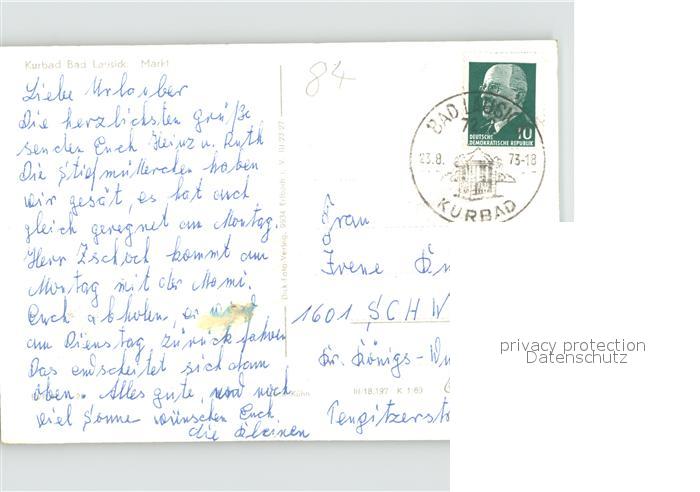 Kurbad Bad Lausick. Markt
Liebe Urlauber
Die herzlichsten grüße
senden Euch Heinz u. Ruth
Die Stiefmütterchen haben
wir gesät, es hat auch
gleich geregnet am Montag.
Herr Zschoch kommt am
Montag mit der Mami.
Euch abholen, er
am Dienstag zurück fahren
Das entscheitet sich dann
oben. Alles gute, und noch
viel Sonne wünschen Euch
die Kleinen
84
BAD LAUSICK
23.8. 73-18
KURBAD
10
DEUTSCHE
DEMOKRATISCHE REPUBLIK
Frau
Irene
1601 SCHW
Kr. Königs-Wu
III/18,197 K 1/69
privacy protection
Datenschutz